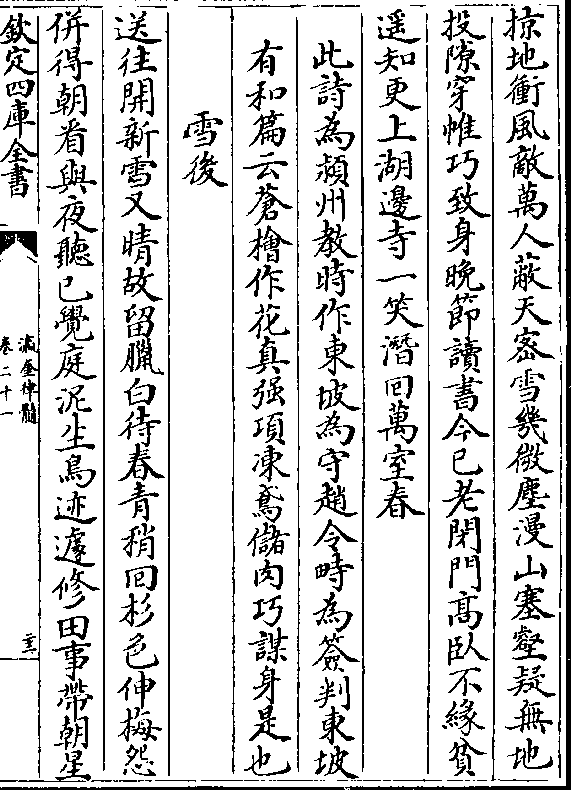 掠地衝風敵萬人蔽天密雪幾微塵漫山塞壑疑無地
投隙穿帷巧致身晚節讀書今已老閉門高臥不緣貧
遥知更上湖邊寺一笑潛回萬室春
此詩為潁州教時作東坡為守趙令畤為簽判東坡
有和篇云蒼檜作花真强項凍鳶儲肉巧謀身是也
雪後
送往開新雪又晴故留臘白待春青稍回杉色伸梅怨
併得朝看與夜聽已覺庭泥生鳥迹遽修田事帶朝星
欽定四庫全書
瀛奎律髓
卷二十一